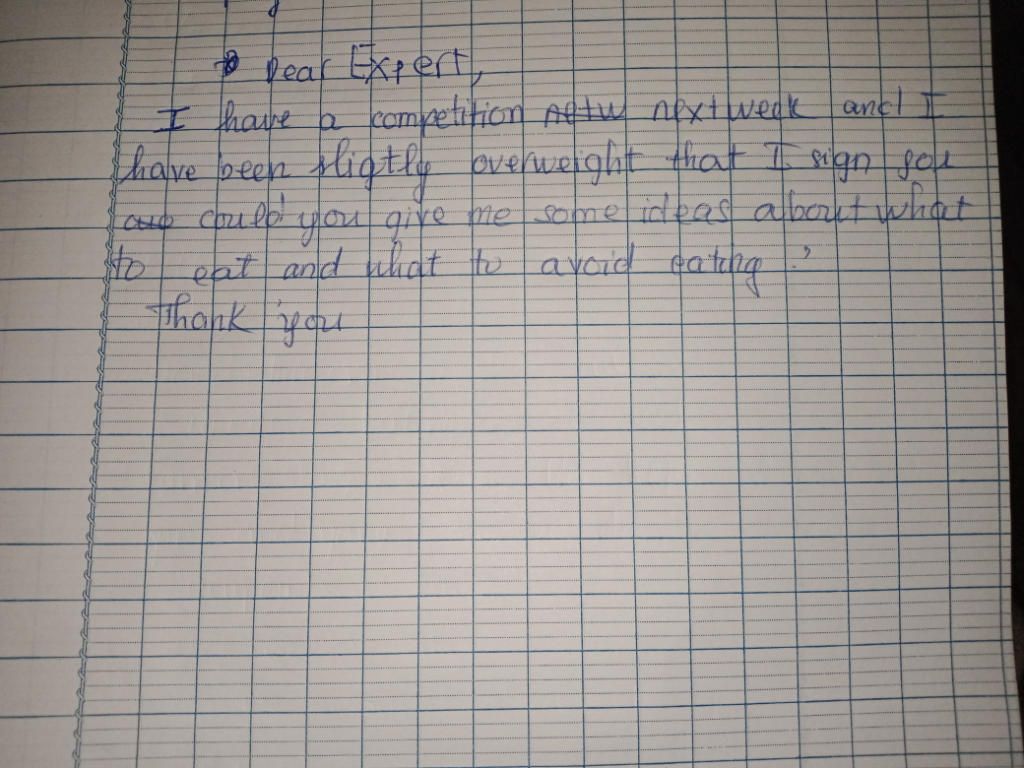 Dear Expert,
I have a competition next week and I
have been sligtly overweight that I sign you
could you give me some ideas about what
to eat and what to avoid eating ?
Thank you